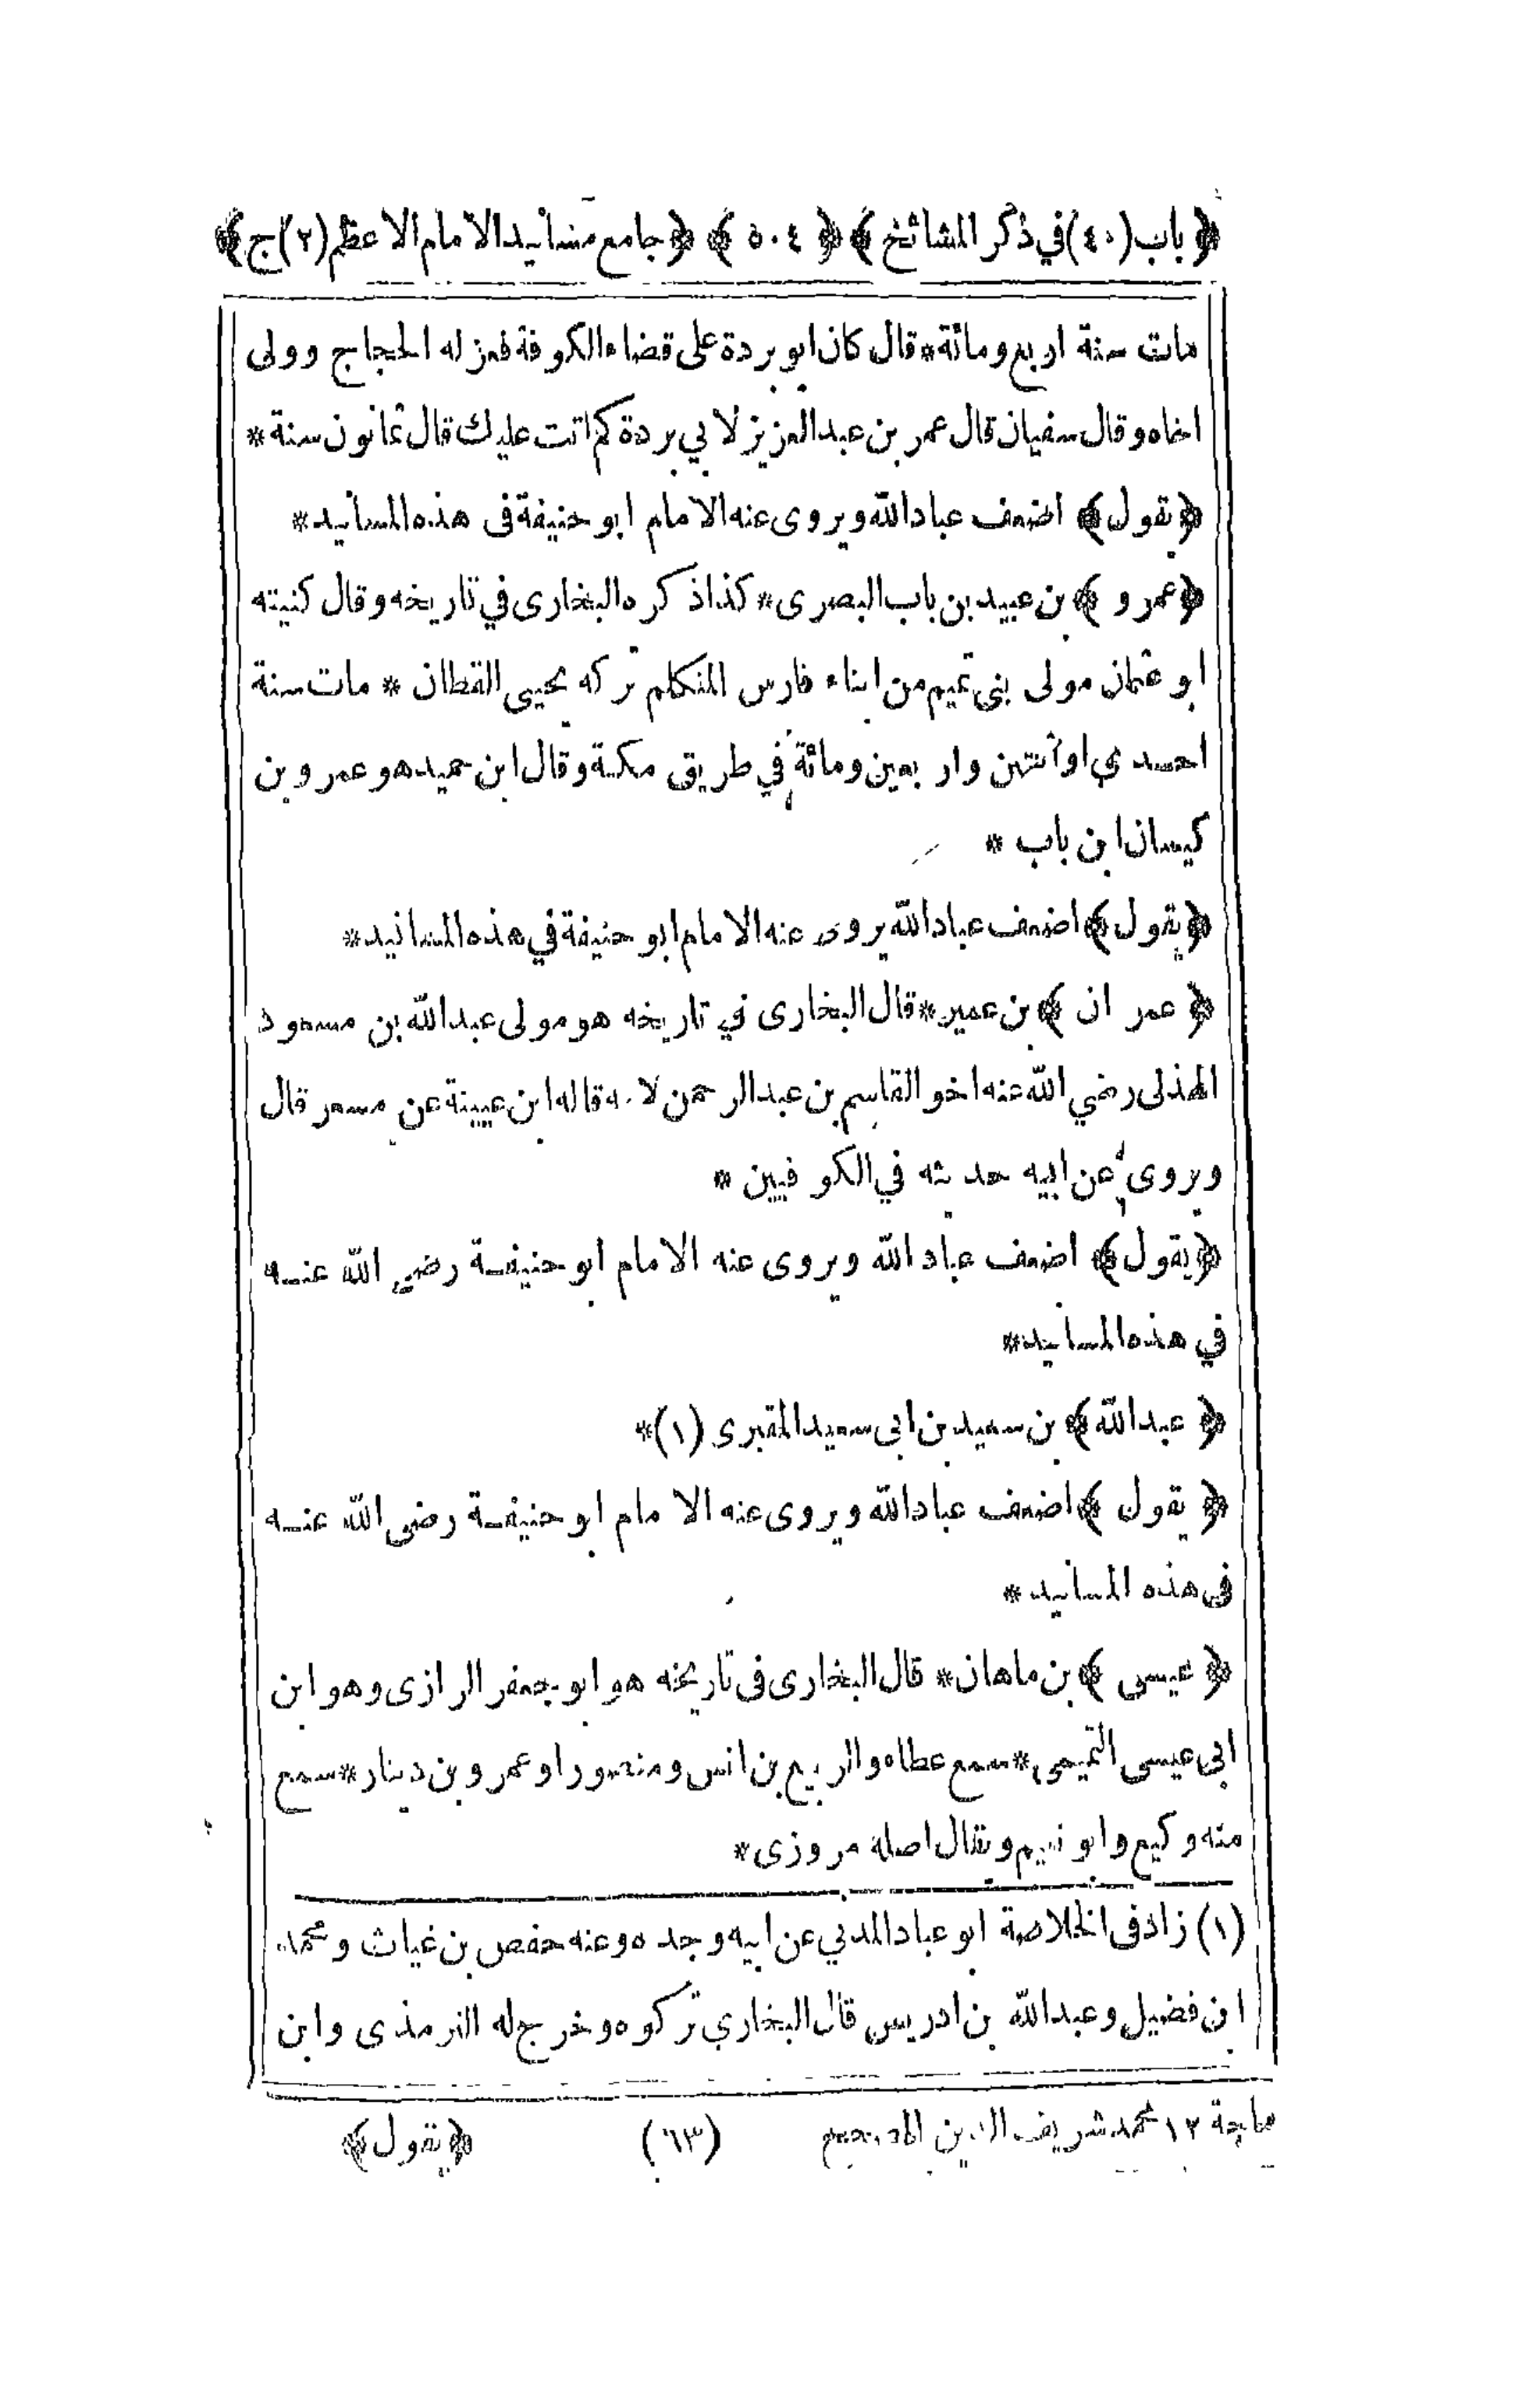 ﴿ باب (٤٠) في ذكر المشائخ ﴾ ﴿ ٥٠٤ ﴾ ﴿ جامع مسانيد الامام الاعظم (٢) ج ﴾
مات سنة اربع ومائة * قال كان ابو بردة على قضاء الكوفة فعزله الحجاج وولى
اخاه وقال سفيان قال عمر بن عبد العزيز لابي بردة كم اتت عليك قال ثمانون سنة *
﴿ يقول ﴾ اضعف عباد الله ويروى عنه الامام ابو حنيفة فى هذه المسانيد *
﴿ عمرو ﴾ بن عبيد بن باب البصرى * كذا ذكره البخارى في تاريخه وقال كنيته
ابو عثمان مولى بنى تميم من ابناء فارس المتكلم تركه يحيى القطان * مات سنة
احدي او اثنتين واربعين ومائة في طريق مكة وقال ابن حميد هو عمرو بن
كيسان ابن باب *
﴿ يقول ﴾ اضعف عباد الله يروى عنه الامام ابو حنيفة في هذه المسانيد *
﴿ عمران ﴾ بن عمير * قال البخارى في تاريخه هو مولى عبد الله بن مسعود
الهذلى رضي الله عنه اخو القاسم بن عبد الرحمن لامه قاله ابن عيينة عن مسعر قال
ويروى عن ابيه حديثه في الكوفيين *
﴿ يقول ﴾ اضعف عباد الله ويروى عنه الامام ابو حنيفة رضي الله عنه
في هذه المسانيد *
﴿ عبد الله ﴾ بن سعيد بن ابى سعيد المقبرى (١) *
﴿ يقول ﴾ اضعف عباد الله ويروى عنه الامام ابو حنيفة رضى الله عنه
فى هذه المسانيد *
﴿ عيسى ﴾ بن ماهان * قال البخارى فى تاريخه هو ابو جعفر الرازى وهو ابن
ابى عيسى التميمى * سمع عطاء والربيع بن انس ومنصورا وعمرو بن دينار * سمع
منه وكيع وابو نعيم ويقال اصله مروزى *
(١) زاد فى الخلاصة ابو عباد المدني عن ابيه وجده وعنه حفص بن غياث ومحمد
ابن فضيل وعبد الله بن ادريس قال البخاري تركوه وخرج له الترمذى وابن
ماجة ١٢ محمد شريف الدين المصحح (٦٣) ﴿ يقول ﴾